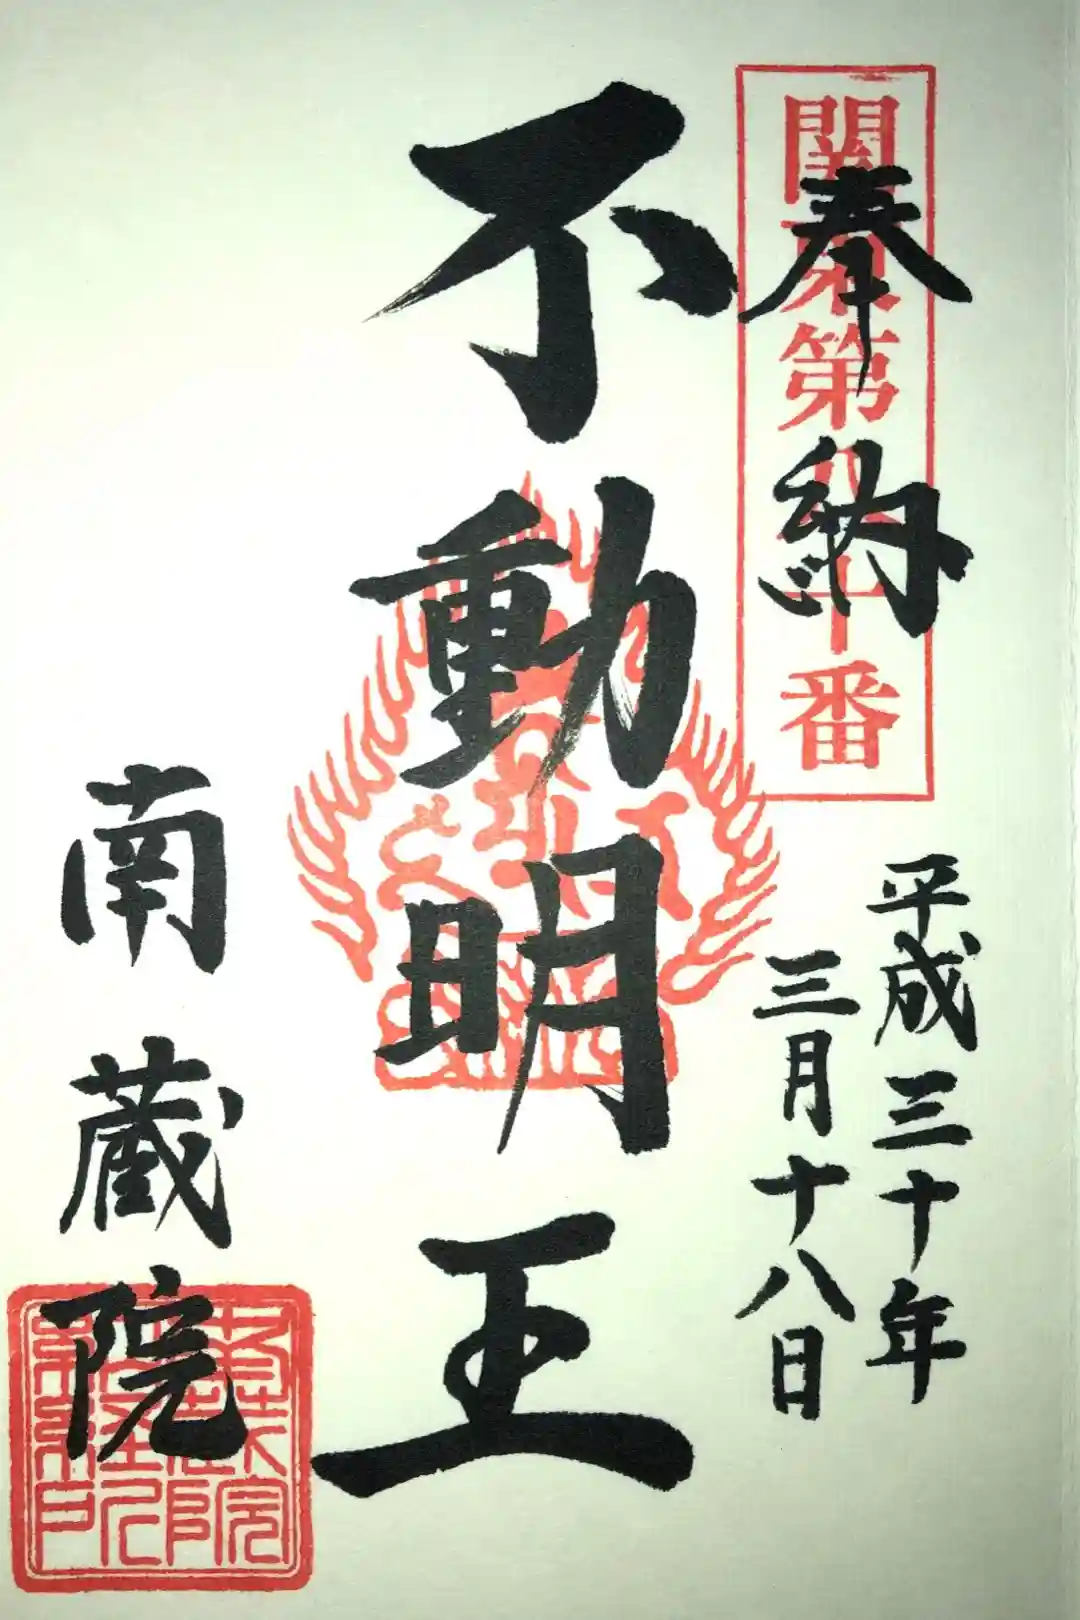 関東第八十番
奉納
平成三十年
三月十八日
不動明王
南蔵院